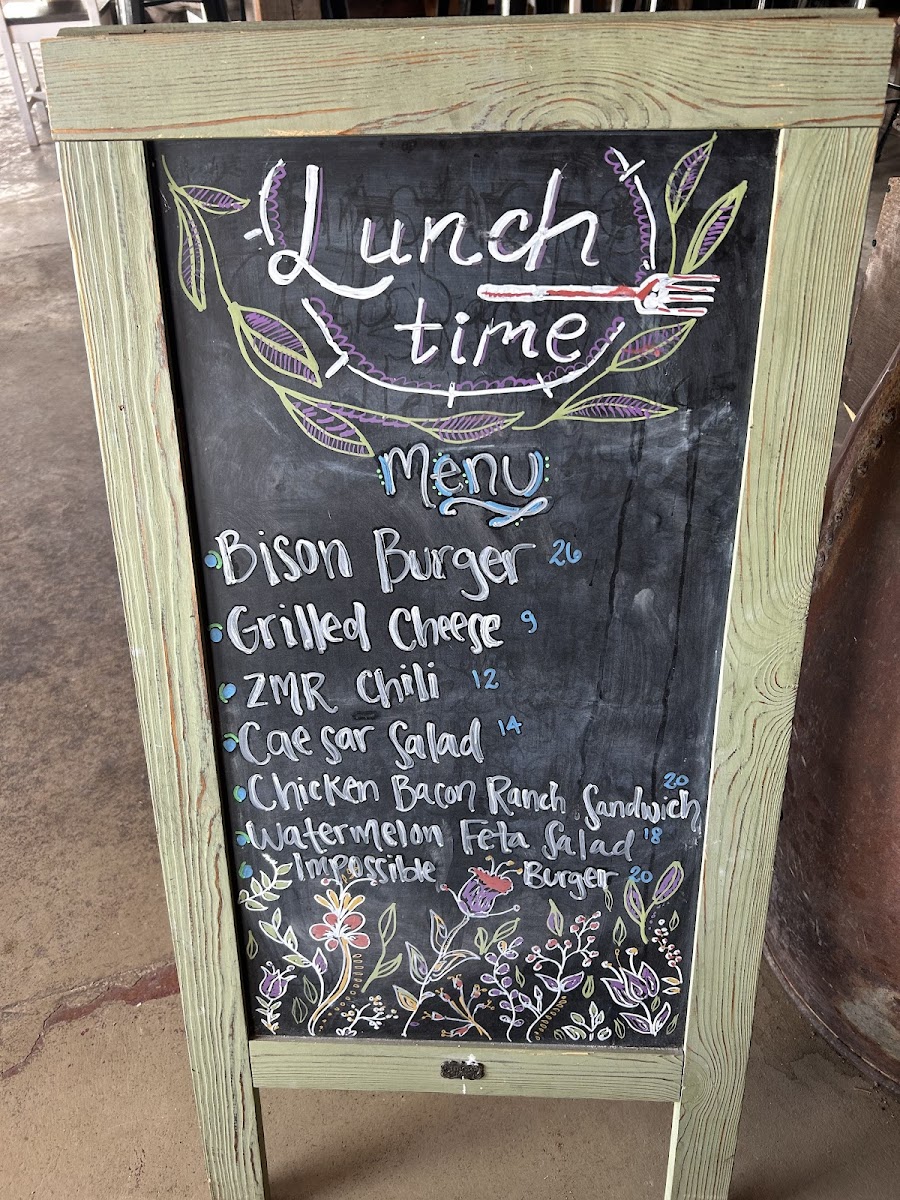 Lunch
time
Menu
Bison Burger 26
Grilled Cheese 9
ZMR Chili 12
Caesar Salad 14
Chicken Bacon Ranch Sandwich 20
Watermelon Feta Salad 18
Impossible Burger 20